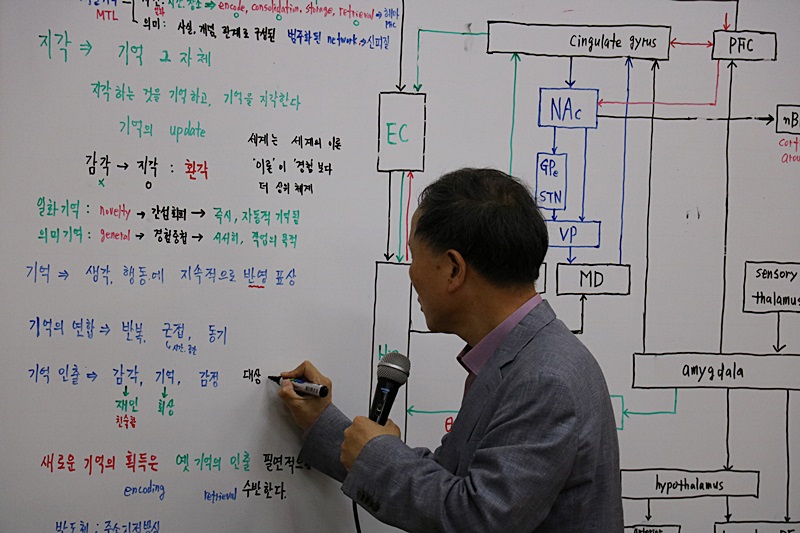 MTL
encode, consolidation, storage, retrieval ⇒
의미 : 사실, 개념, 관계로 구성된 범주화된 network → 신피질
지각 ⇒ 기억 그 자체
지각하는 것을 기억하고, 기억을 지각한다
기억의 update
감각 → 지각 : 환각
x o
세계는 세계의 이론
'이론'이 '경험'보다
더 상위 체계
일화기억 : novelty → 간섭회피 → 즉시, 자동적 기억됨
의미기억 : general → 경험중첩 → 서서히, 학습의 목적
기억 ⇒ 생각, 행동에 지속적으로 반영 표상
기억의 연합 ⇒ 반복, 근접, 동기
기억 인출 ⇒ 감각, 기억, 감정 대상
재인 회상
친숙함
새로운 기억의 획득은 옛 기억의 인출 필연적으
encoding retrieval 수반한다.
cingulate gyrus
PFC
EC
NAc
GPe
STN
VP
MD
sensory
thalamus
amygdala
hypothalamus